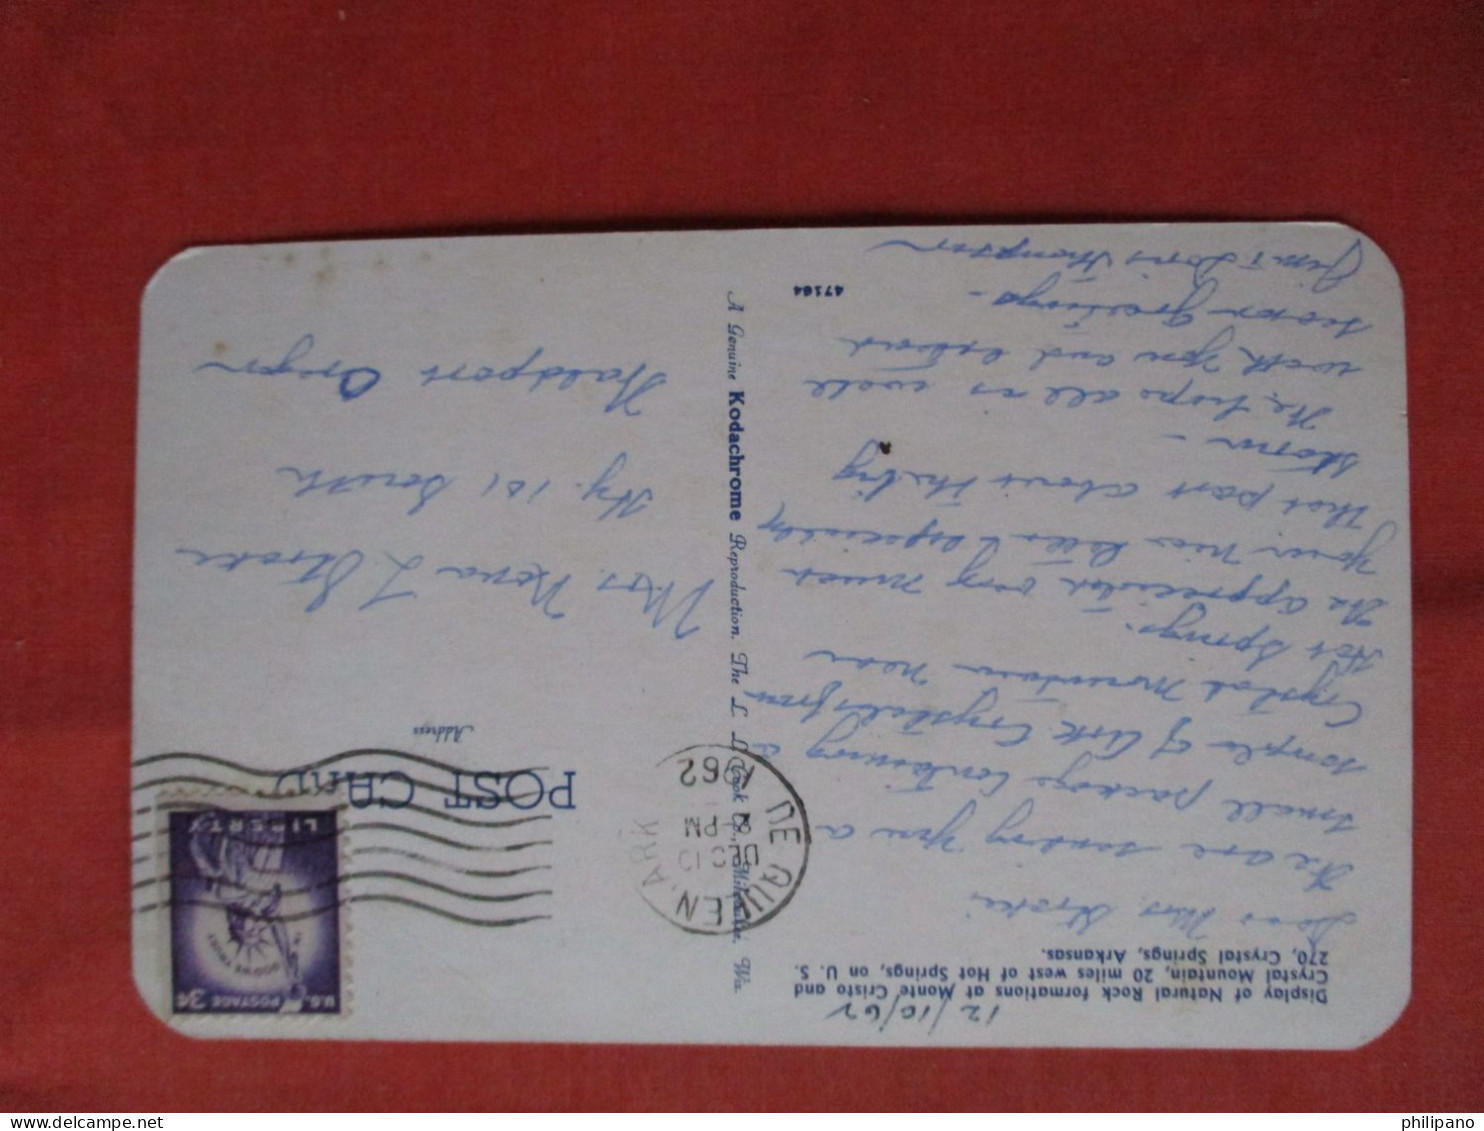 12/10/62
Display of Natural Rock formations at Monte Cristo and
Crystal Mountain, 20 miles west of Hot Springs, on U. S.
270, Crystal Springs, Arkansas.
Dear Mrs Stroke;
We are sending you a
small package containing a
sample of little Crystals from
Crystal Mountain near
Hot Springs.
We appreciated very much
your nice letter especially
that part about the big
storm -
We hope all is well
with you and extend
season greetings -
Jim & Doris Thompson
47164
A Genuine Kodachrome Reproduction. The L. L. Cook Co., Milwaukee, Wis.
POST CARD
Address
DE QUEEN, ARK
DEC 10
PM
1962
U.S. POSTAGE 3¢
IN GOD WE TRUST
LIBERTY
Mrs. Nena L. Stroke
Hy. 101 South
Waldport Oregon
philipano